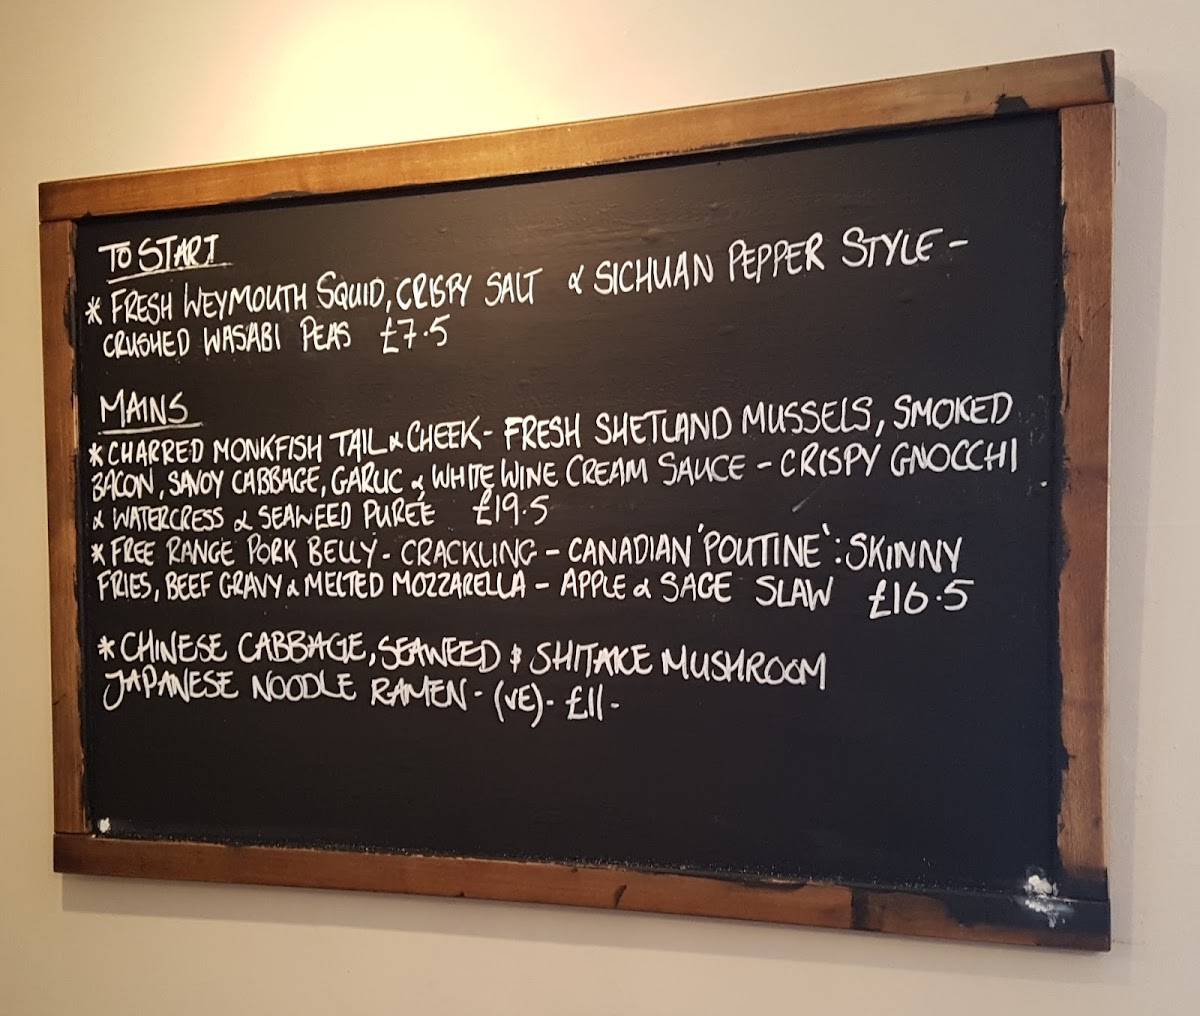 TO START
* FRESH WEYMOUTH SQUID, CRISPY SALT & SICHUAN PEPPER STYLE -
CRUSHED WASABI PEAS £7.5
MAINS
* CHARRED MONKFISH TAIL & CHEEK - FRESH SHETLAND MUSSELS, SMOKED
BACON, SAVOY CABBAGE, GARLIC & WHITE WINE CREAM SAUCE - CRISPY GNOCCHI
& WATERCRESS & SEAWEED PUREÉ £19.5
* FREE RANGE PORK BELLY - CRACKLING - CANADIAN 'POUTINE': SKINNY
FRIES, BEEF GRAVY & MELTED MOZZARELLA - APPLE & SAGE SLAW £16.5
* CHINESE CABBAGE, SEAWEED & SHITAKE MUSHROOM
JAPANESE NOODLE RAMEN - (VE) - £11 -